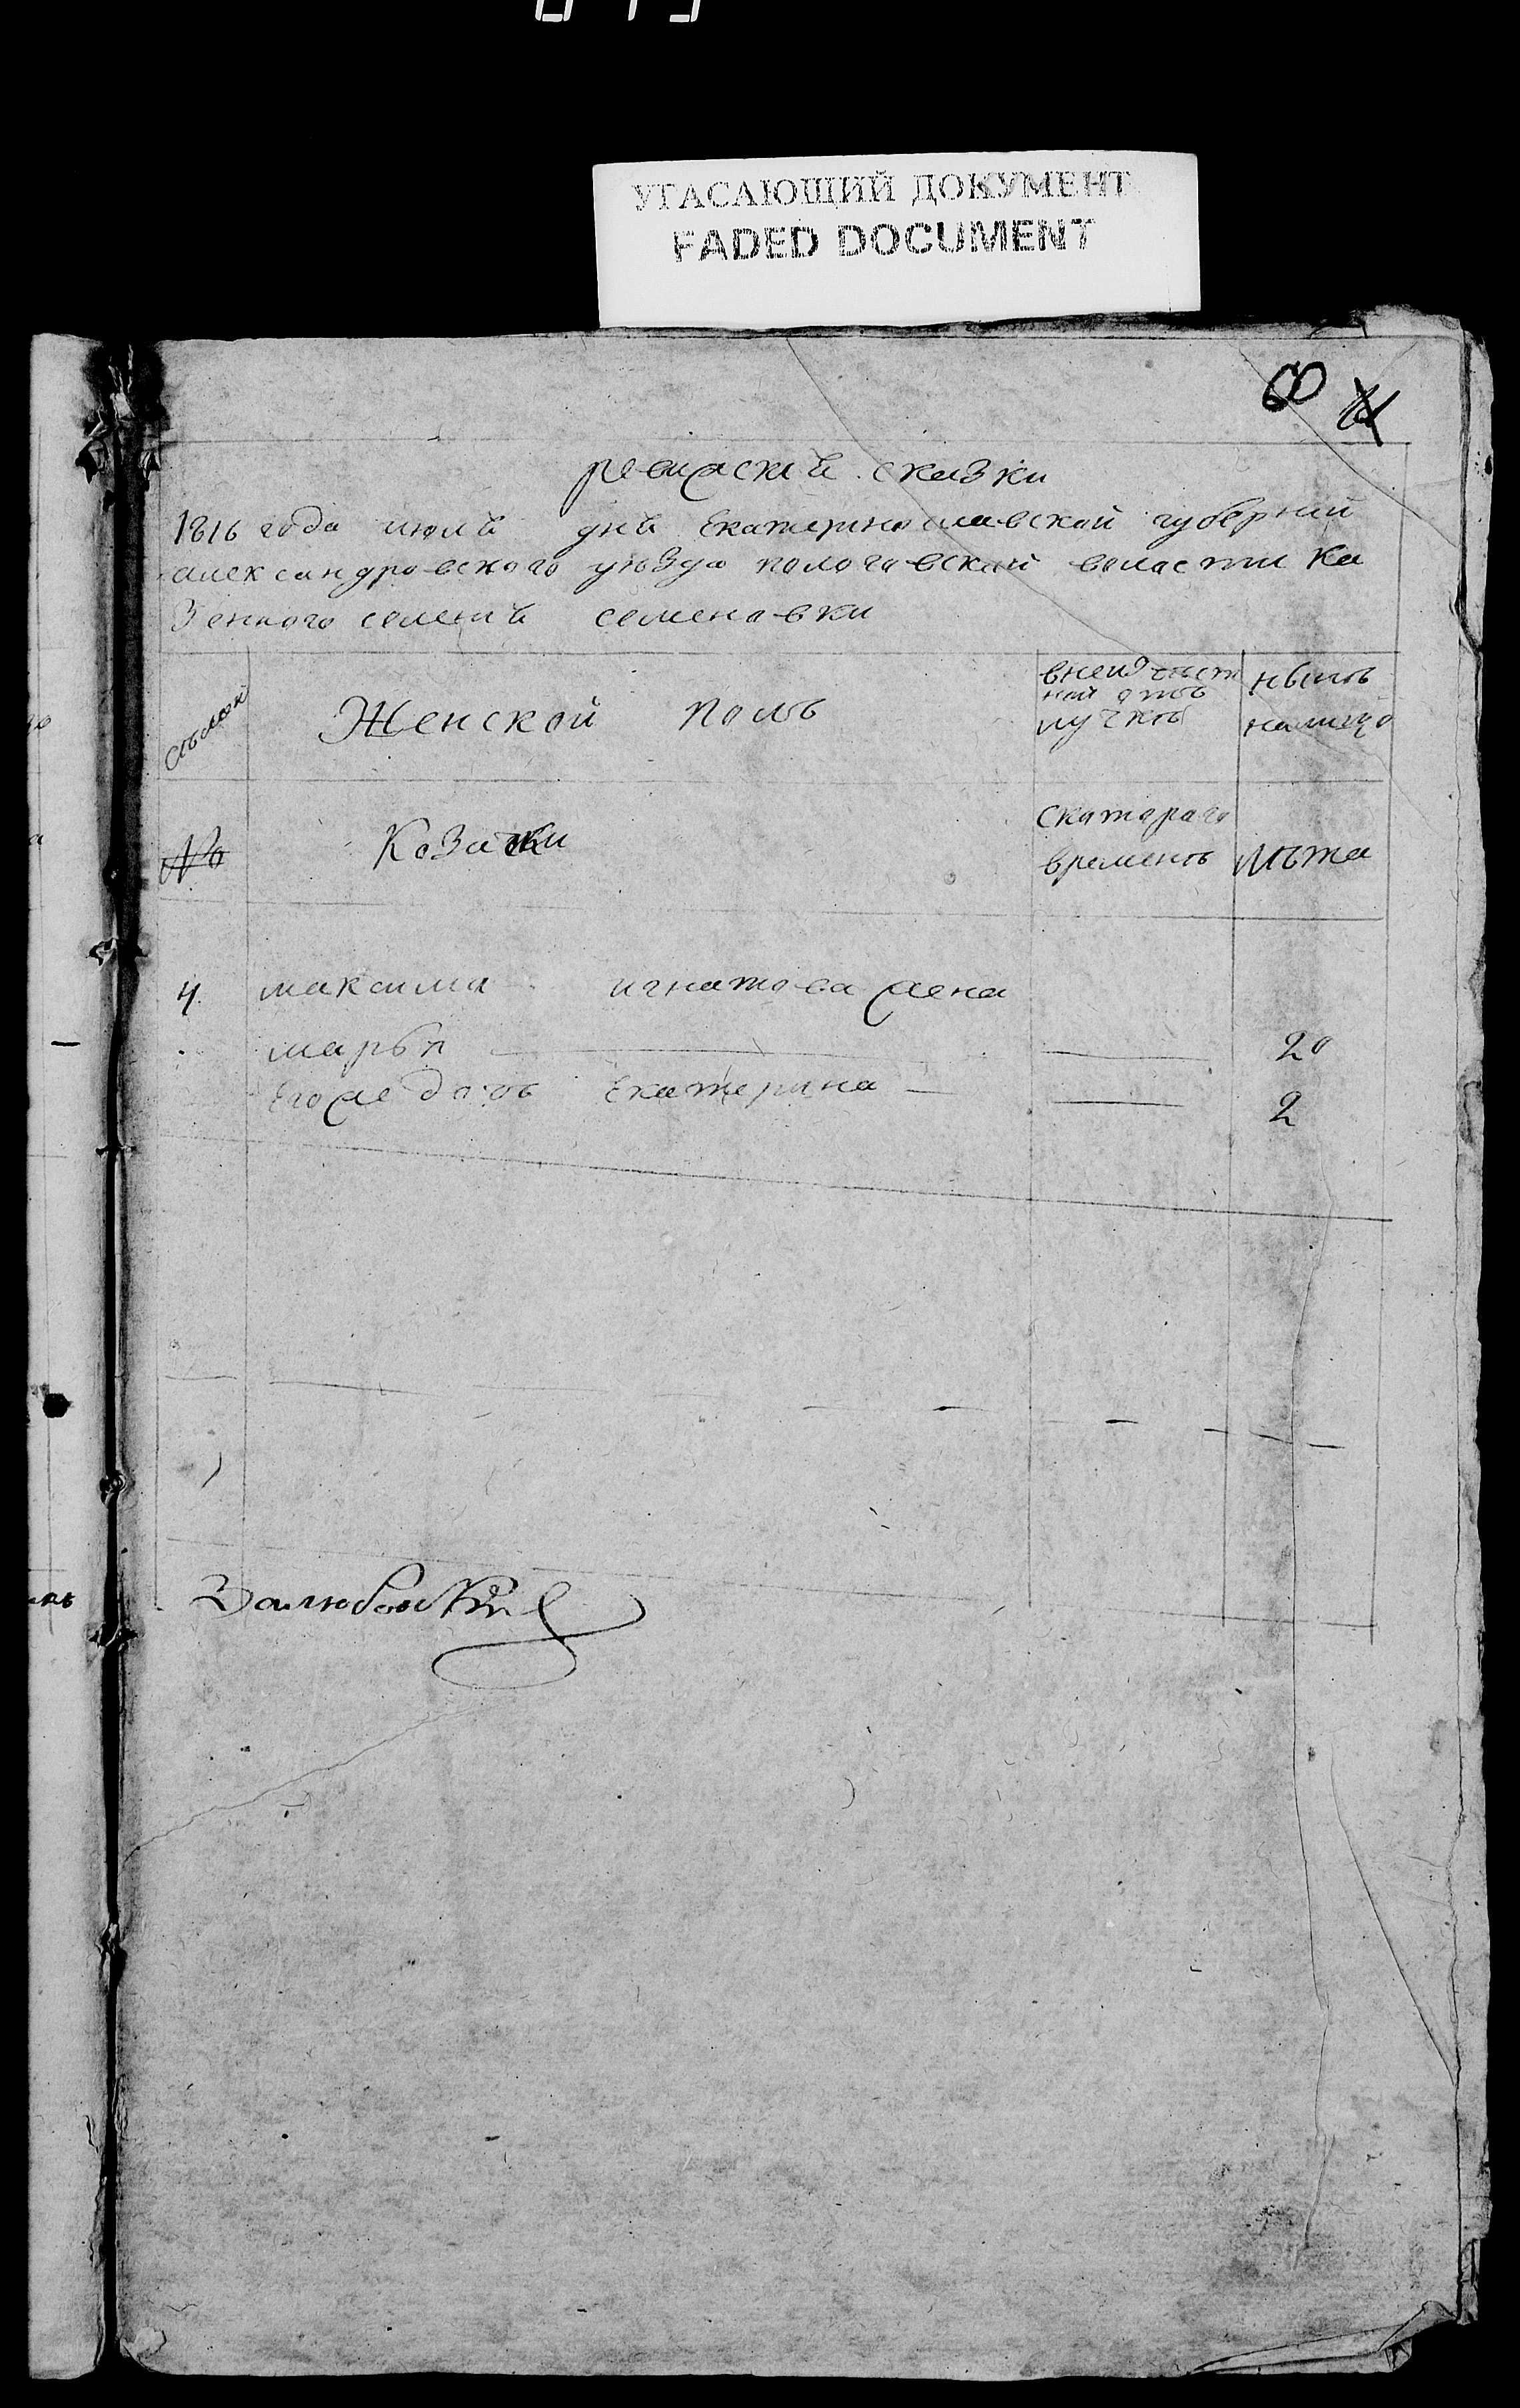 УГАСАЮЩИЙ ДОКУМЕНТ
FADED DOCUMENT
60
ревиская сказки
1816 года июля дня Екатеринославской губернии
александровского уезда пологовской воласти ка
зенного селения семеновки
Женской полъ
нынъ
налицо
№
Козачки
скаторого
временъ
лѣта
4. максима игнатова жена
марья 20
его же дочь Екатерина 2